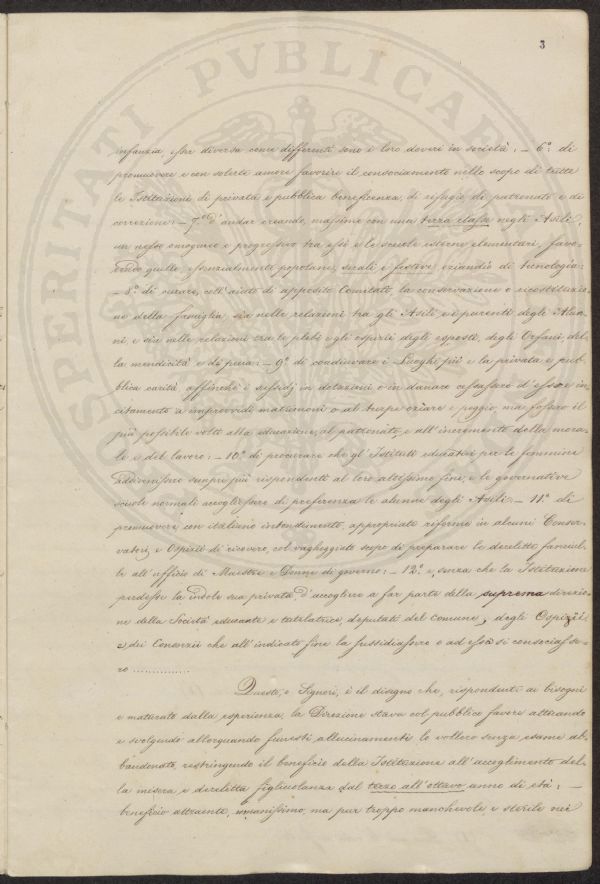 3
infanzia, esser diversa come differenti sono i loro doveri in società; – 6º di
promuovere e con solerte amore favorire il consociamento nello scopo di tutte
le Istituzioni di privata e pubblica beneficenza, di refugio, di patronato e di
correzione: – 7º d'andar creando, massime con una terza classe negli Asili,
un nesso omogeneo e progressivo tra essi e le scuole esterne elementari, favo-
rendo quelle essenzialmente popolane, serali e festive eziandio di tecnologia:
– 8º di curare, coll'aiuto di apposito Comitato, la conservazione e ricostituzio-
ne della famiglia, sia nelle relazioni tra gli Asili e i parenti degli Alun-
ni, e sia nelle relazioni tra la plebe e gli ospizii degli esposti, degli Orfani, del-
la mendicità e di pena: – 9º di coadiuvare i Luoghi pii e la privata e pub-
blica carità affinché i sussidj in dotazioni o in danaro cessassero d'essere in-
citamento a improvvidi matrimoni o al turpe oziare e peggio, ma fossero il
più possibile volti alla educazione, al patronato, e all'incremento della mora-
le e del lavoro: – 10º di procurare che gl'Istituti educatori per le femmine
addivenissero sempre più rispondenti al loro altissimo fine, e le governative
scuole normali accogliessero di preferenza le alunne degli Asili: – 11º di
promuovere, con italiano intendimento, appropriate riforme in alcuni Conser-
vatorj e Ospizii di ricovero, col vagheggiato scopo di preparare le derelitte fanciul-
le all'ufficio di Maestre e Donne di governo: – 12º e, senza che la Istituzione
perdesse la indole sua privata, d'accogliere a far parte della suprema direzio-
ne della Società educante e tutelatrice, deputati del Comune, degli Ospizii
e dei Consorzii che all'indicato fine la sussidiassero e ad essa si consociasse-
ro ..............
Questo, o Signori, è il disegno che, rispondente ai bisogni
e maturato dalla esperienza, la Direzione stava col pubblico favore attuando
e svolgendo allorquando funesti allucinamenti lo vollero senza esame ab-
bandonato, restringendo il beneficio della Istituzione all'accoglimento del-
la misera e derelitta figliuolanza dal terzo all'ottavo anno di età: –
beneficio attraente, umanissimo, ma pur troppo manchevole e sterile nei
SPERITATI PVBLICAE